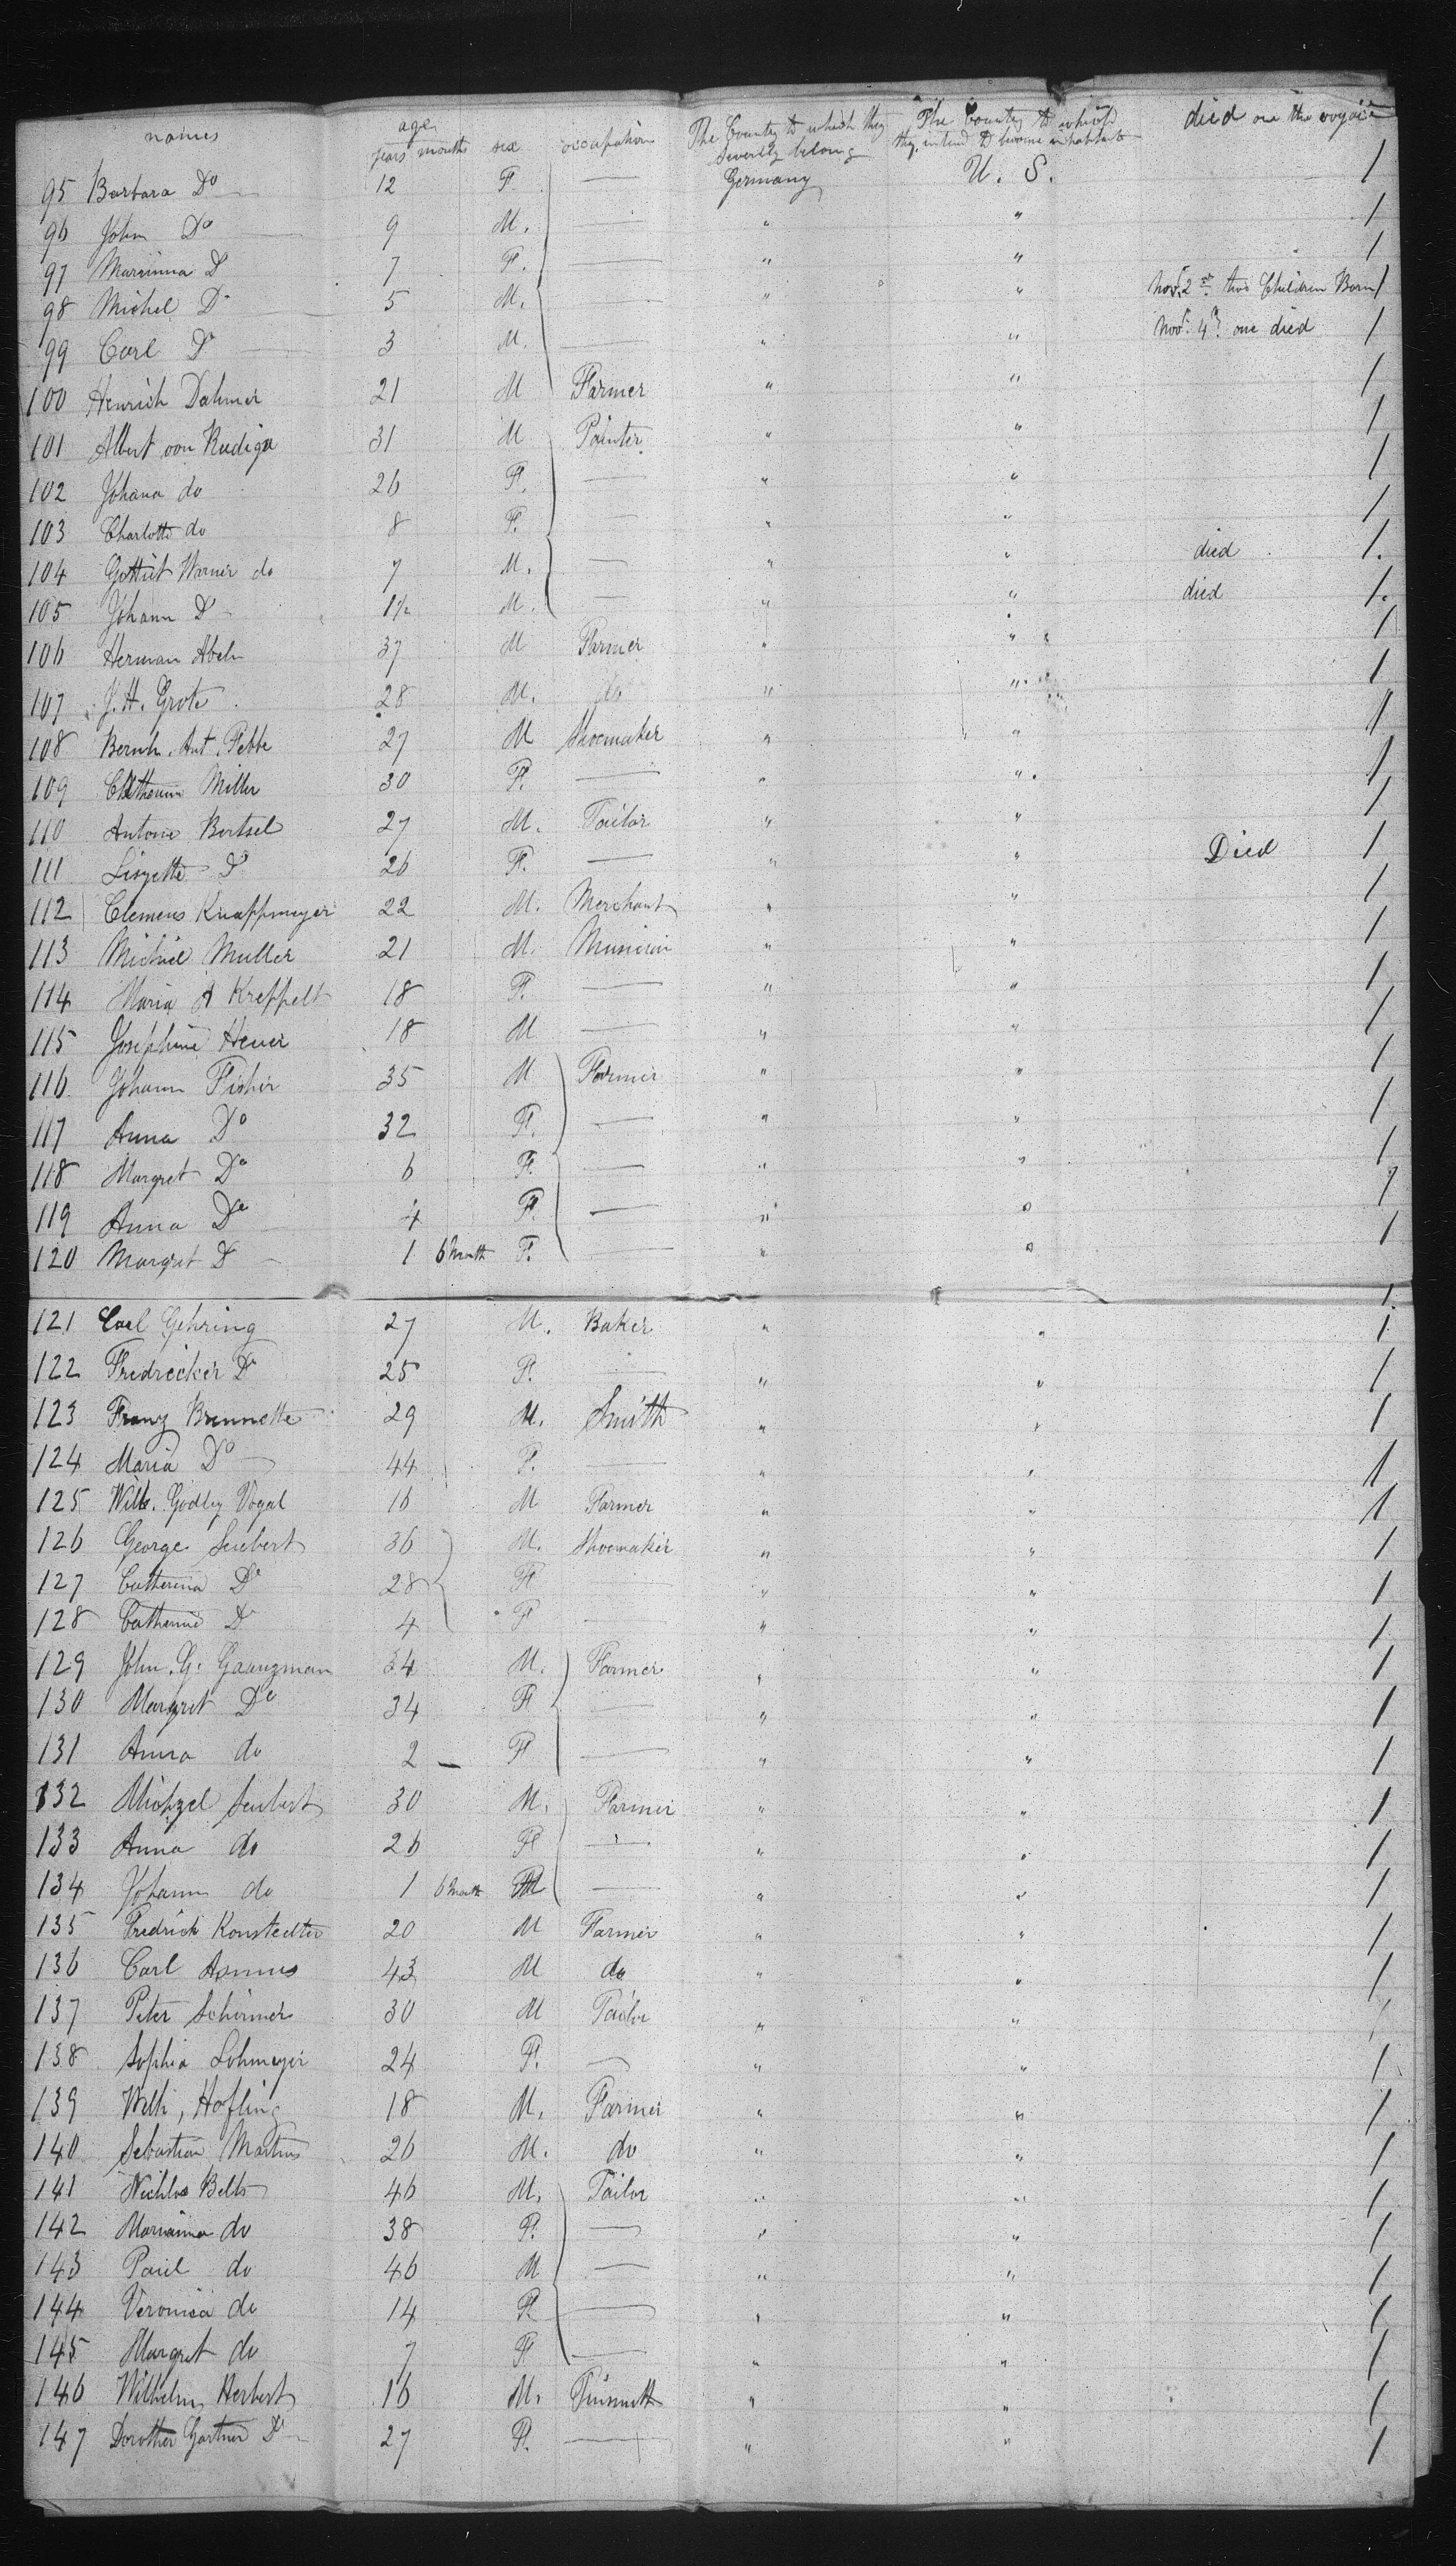 names age years months sex occupation The Country to which they severlly belong The Country to which they intend to become inhabitants died on the voyage
95 Barbara Do 12 F. — Germany U. S. 1
96 John Do 9 M. — " " 1
97 Marianna Do 7 F. — " " 1
98 Michel Do 5 M. — " " Novr. 2nd two Children Born 1
99 Carl Do 3 M. — " " Novr. 4th one died 1
100 Henrich Dahmer 21 M Farmer " " 1
101 Albert von 31 M Painter " " 1
102 Johana do 26 F. — " " 1
103 Charlotte do 8 F. — " " 1
104 Warner do 7 M. — " " died 1.
105 Johann Do 1½ M. — " " died 1.
106 Herman Abeln 37 M Farmer " " 1
107 J. H. Grote 28 M. do " " 1
108 Bernh. Ant. 27 M Shoemaker " " 1
109 Miller 30 F. — " " 1
110 Antone Bertsel 27 M. Tailor " " 1
111 Liszette Do 26 F. — " " Died 1
112 Clemens Knappmeyer 22 M. Merchant " " 1
113 Michiel Muller 21 M. " " 1
114 Maria A Kreppelt 18 F. — " " 1
115 Josephine Heuer 18 M — " " 1
116 Johann Fisher 35 M Farmer " " 1
117 Anna Do 32 F. — " " 1
118 Margret Do 6 F. — " " 1
119 Anna Do 4 F. — " " 1
120 Margret Do 1 6 Month F. — " " 1
121 Carl Gehring 27 M. Baker " " 1
122 Fredricker Do 25 F. — " " 1
123 Franz Brunnette 29 M. Smith " " 1
124 Maria Do 44 F. — " " 1
125 Godley Vogal 16 M Farmer " " 1
126 George Seubert 36 M. Shoemaker " " 1
127 Catterina Do 28 F — " " 1
128 Catharine Do 4 F — " " 1
129 John. G. Gaanzman 34 M. Farmer " " 1
130 Margret Do 34 F — " " 1
131 Anna do 2 — F — " " 1
132 Seubert 30 M. Farmer " " 1
133 Anna do 26 F — " " 1
134 Johann do 1 6 Month M — " " 1
135 Fredrick Konstedter 20 M Farmer " " 1
136 Carl Asmus 43 M do " " 1
137 Peter Schirmer 30 M Tailor " " 1
138 Sophia Lohmeyer 24 F. — " " 1
139 Hofling 18 M. Farmer " " 1
140 Sebastian Martins 26 M. do " " 1
141 Nichlos Belts 46 M. Tailor " " 1
142 Marianna do 38 F. — " " 1
143 Paul do 46 M — " " 1
144 Veronica do 14 F. — " " 1
145 Margret do 7 F — " " 1
146 Wilhelm Herbert 16 M. " " 1
147 Dorother Gartner Do 27 F. — " " 1